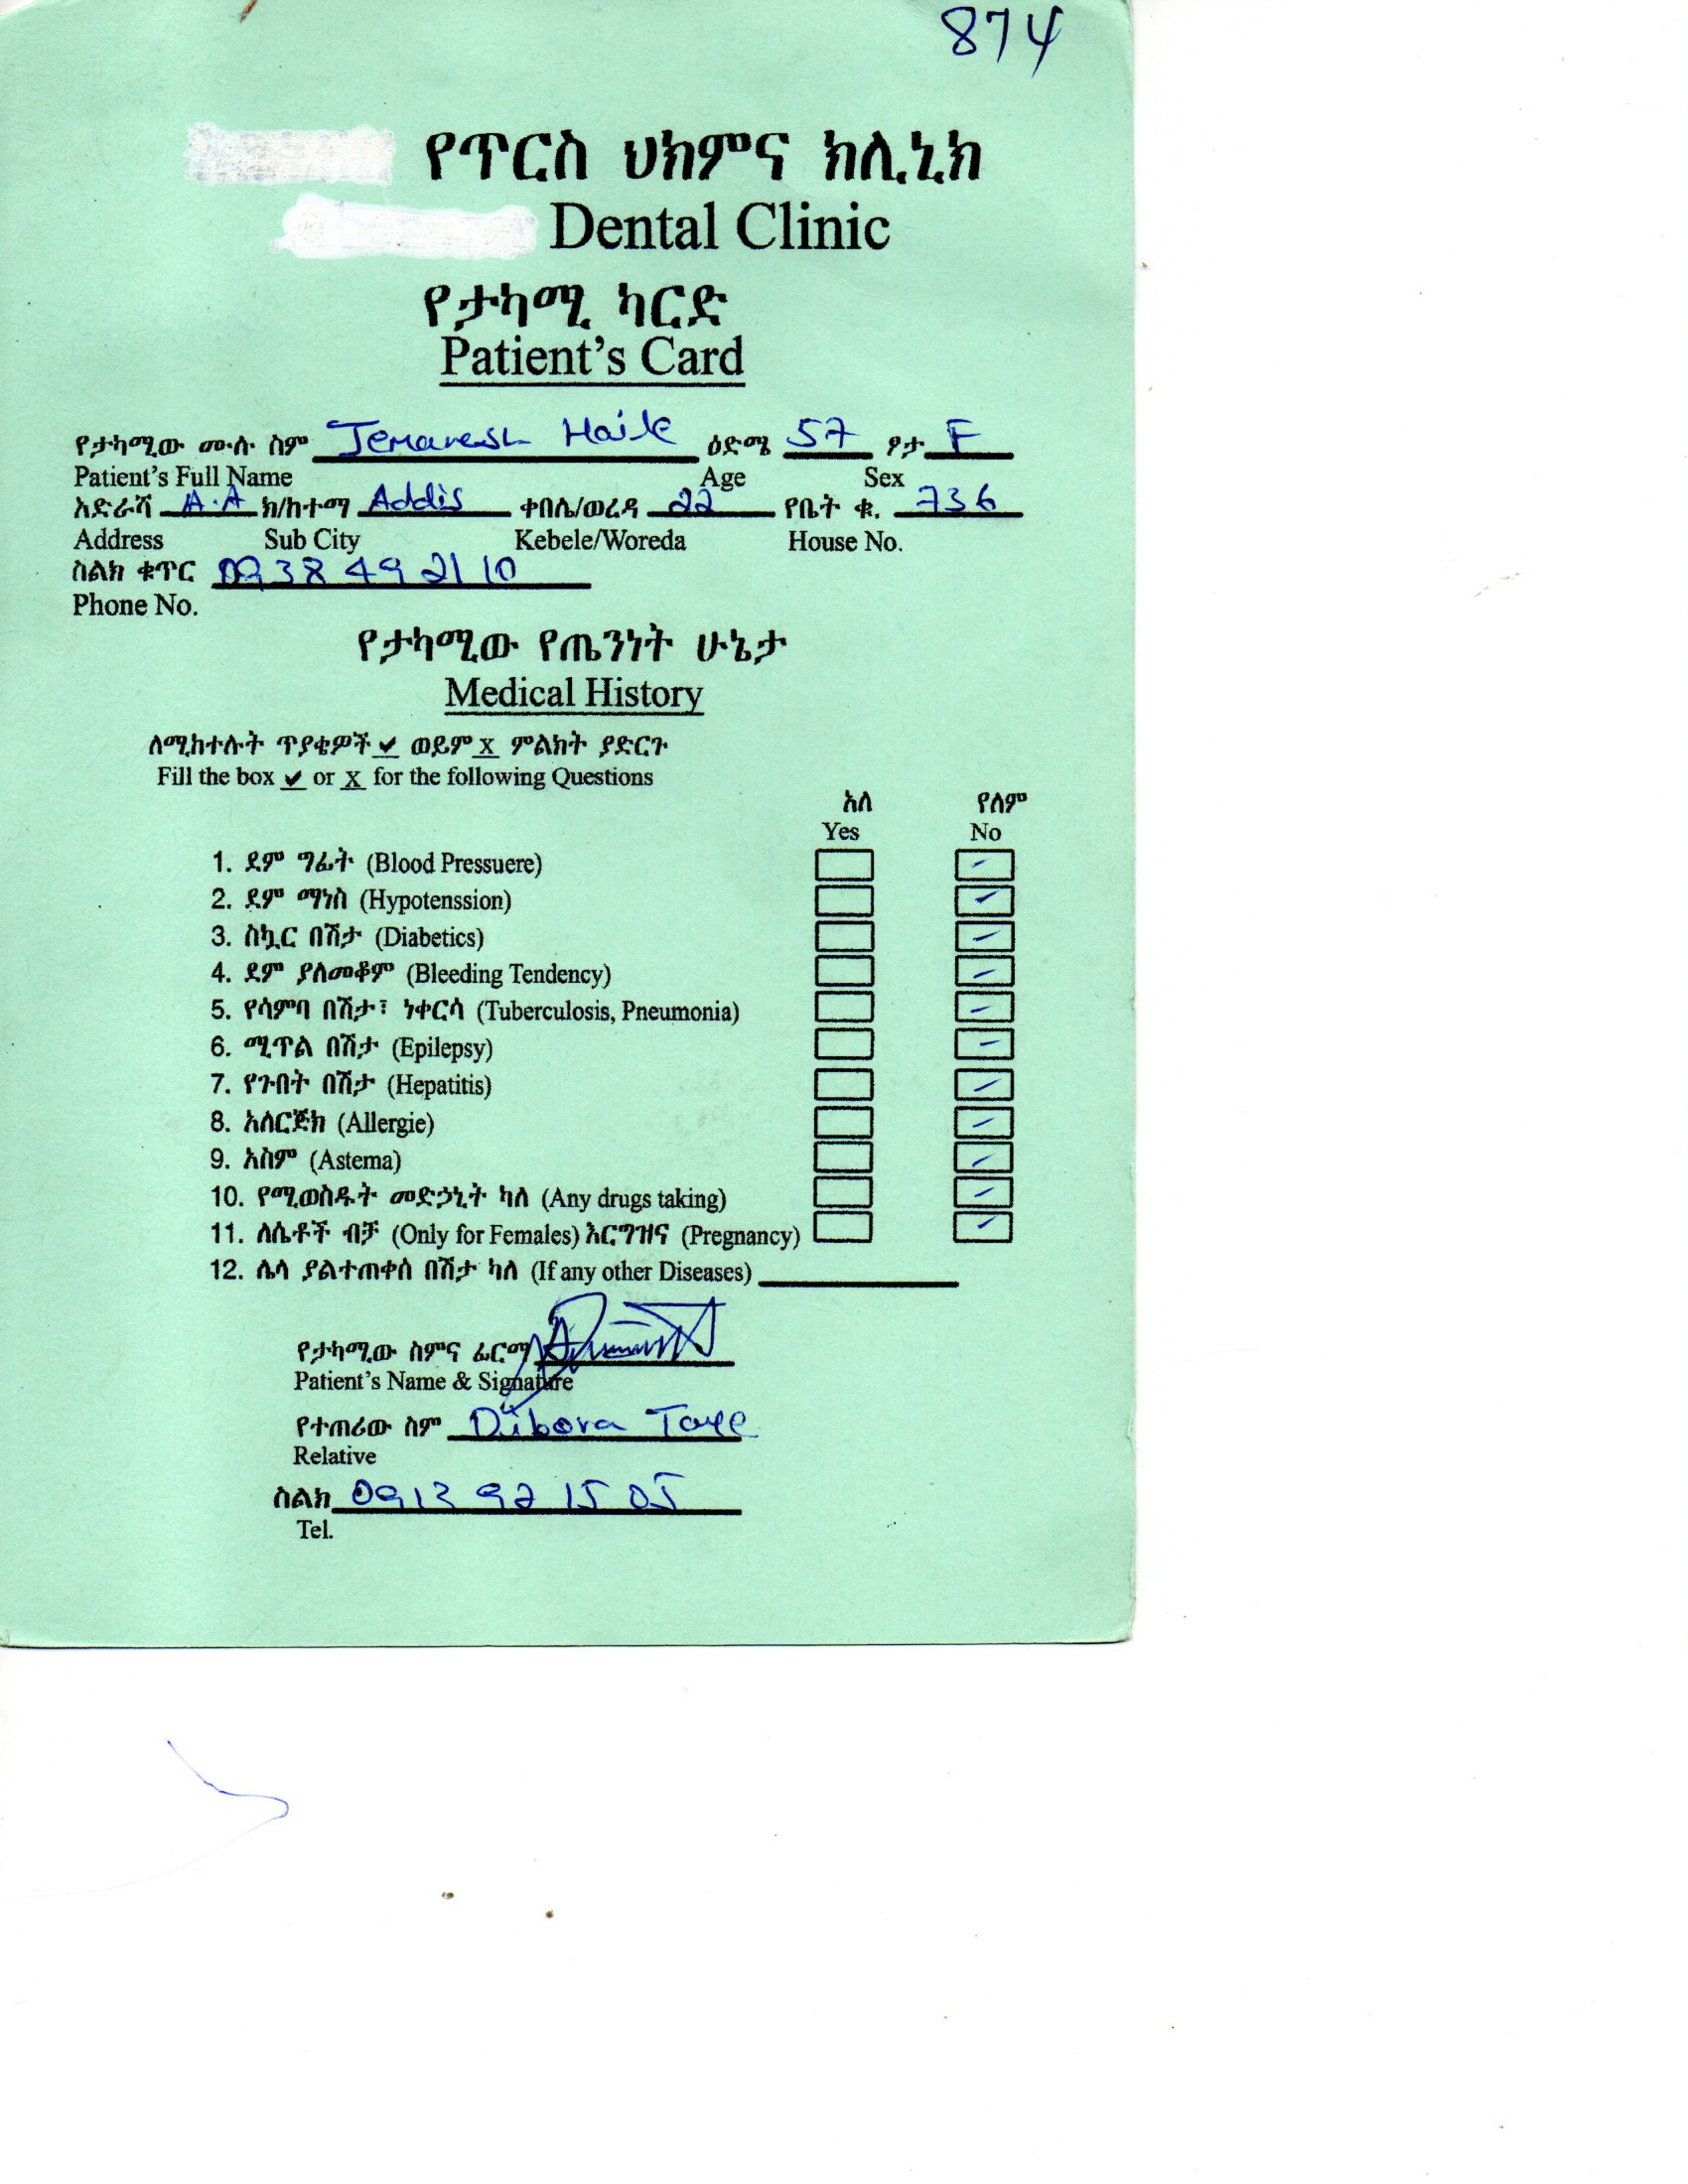 874
የጥርስ ህክምና ክሊኒክ
Dental Clinic
የታካሚ ካርድ
Patient's Card
የታካሚው ሙሉ ስም Jemanesh Haile ዕድሜ 57 ፆታ F
Patient's Full Name Age Sex
አድራሻ A.A ክ/ከተማ Addis ቀበሌ/ወረዳ 22 የቤት ቁ. 736
Address Sub City Kebele/Woreda House No.
ስልክ ቁጥር 0938 49 21 10
Phone No.
የታካሚው የጤንነት ሁኔታ
Medical History
ለሚከተሉት ጥያቄዎች ✔ ወይም X ምልክት ያድርጉ
Fill the box ✔ or X for the following Questions
አለ የለም
Yes No
1. ደም ግፊት (Blood Pressuere)
2. ደም ማነስ (Hypotenssion) ✓
3. ስኳር በሽታ (Diabetics)
4. ደም ያለመቆም (Bleeding Tendency)
5. የሳምባ በሽታ፣ ነቀርሳ (Tuberculosis, Pneumonia)
6. ሚጥል በሽታ (Epilepsy)
7. የጉበት በሽታ (Hepatitis)
8. አለርጅክ (Allergie)
9. አስም (Astema)
10. የሚወስዱት መድኃኒት ካለ (Any drugs taking)
11. ለሴቶች ብቻ (Only for Females) እርግዝና (Pregnancy)
12. ሌላ ያልተጠቀሰ በሽታ ካለ (If any other Diseases)
የታካሚው ስምና ፊርማ
Patient's Name & Signature
የተጠሪው ስም Dibora Taye
Relative
ስልክ 0913 92 15 05
Tel.